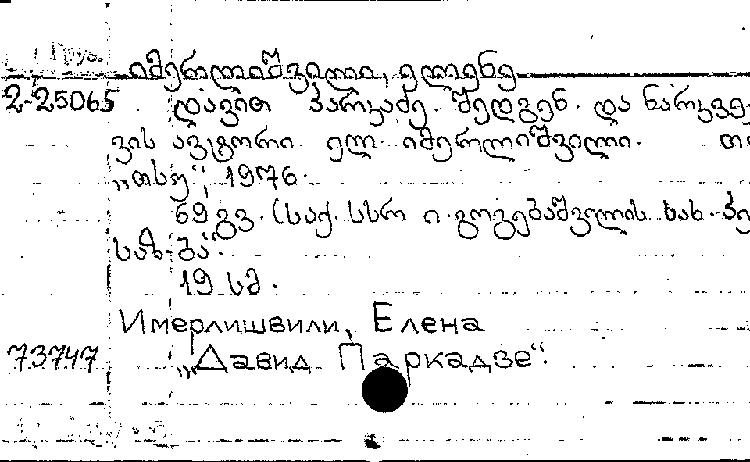 იმერლიშვილი, ელენე
2-25065 დავით პარკაძე. შედგენ. და ნარკვე
ვის ავტორი ელ. იმერლიშვილი.
„თსუ", 1976.
69 გვ. (საქ. სსრ ი. გოგებაშვილის სახ. პე
საზ-ბა".
19 სმ.
Имерлишвили, Елена
73747 „Давид Паркадзе".